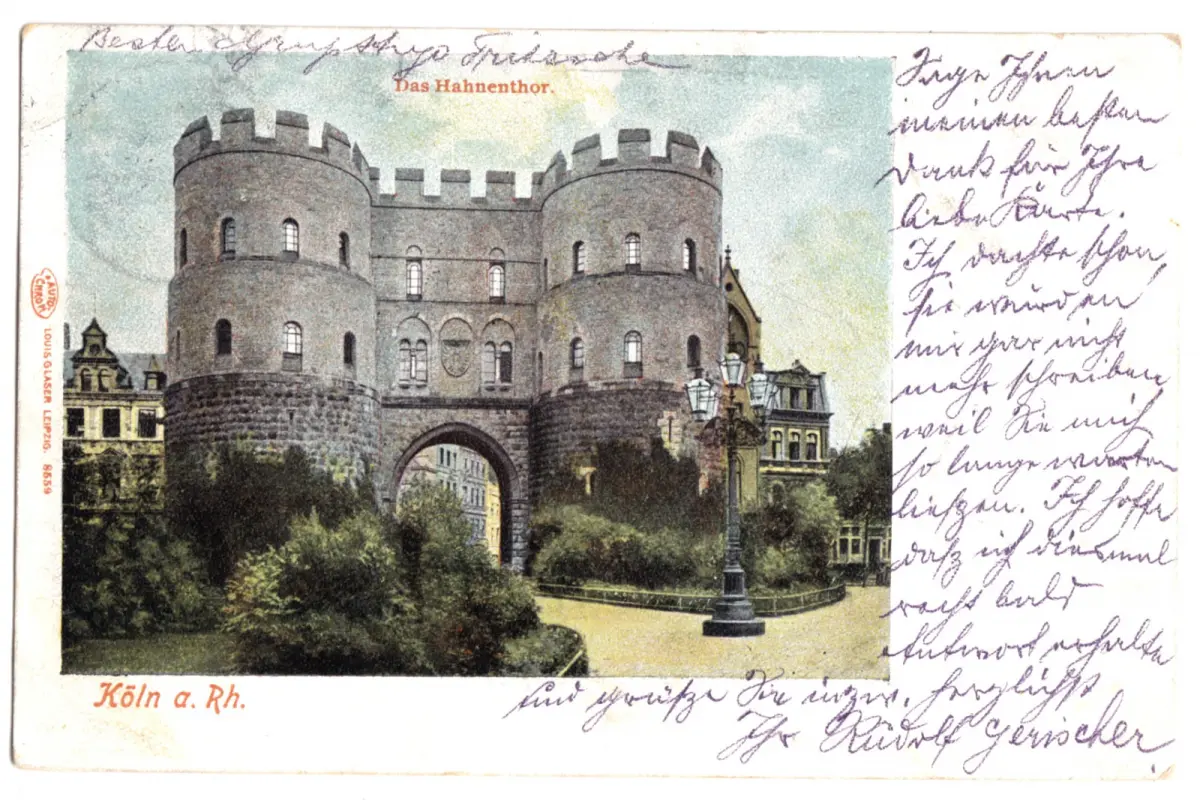 Besten Gruß Fritzsche
Das Hahnenthor.
Sage Ihnen
meinen besten
Dank für Ihre
liebe Karte.
Ich dachte schon,
sie würden
mir gar nicht
mehr schreiben
weil Sie mich
so lange warten
ließen. Ich hoffe
daß ich diesmal
recht bald
Antwort erhalte
und grüße Sie inzw. herzlichst
Ihr Rudolf Gerischer
Köln a. Rh.
AUTO-
CHROM
LOUIS GLASER LEIPZIG. 8559